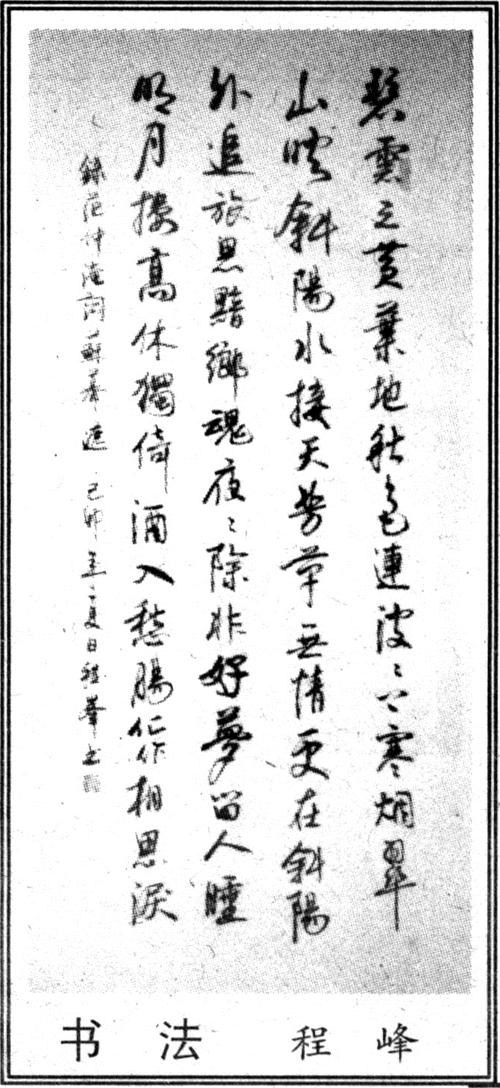 碧雲天黄葉地秋色連波〻上寒烟翠
山暎斜陽水接天芳草無情更在斜陽
外追旅思黯鄉魂夜〻除非好夢留人睡
明月樓高休獨倚酒入愁腸化作相思淚
錄范仲淹詞一蘇幕遮 己卯年夏日程峯书
书法 程峰